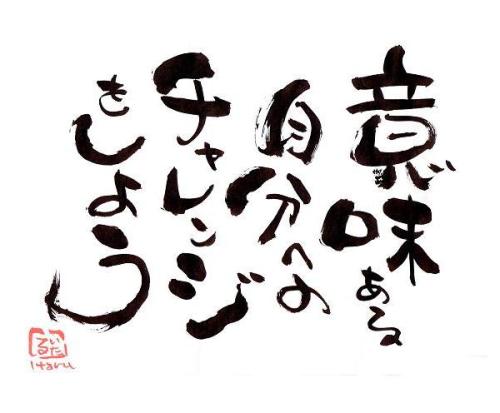 意味ある
自分への
チャレンジ
をしよう
いたる
Itaru